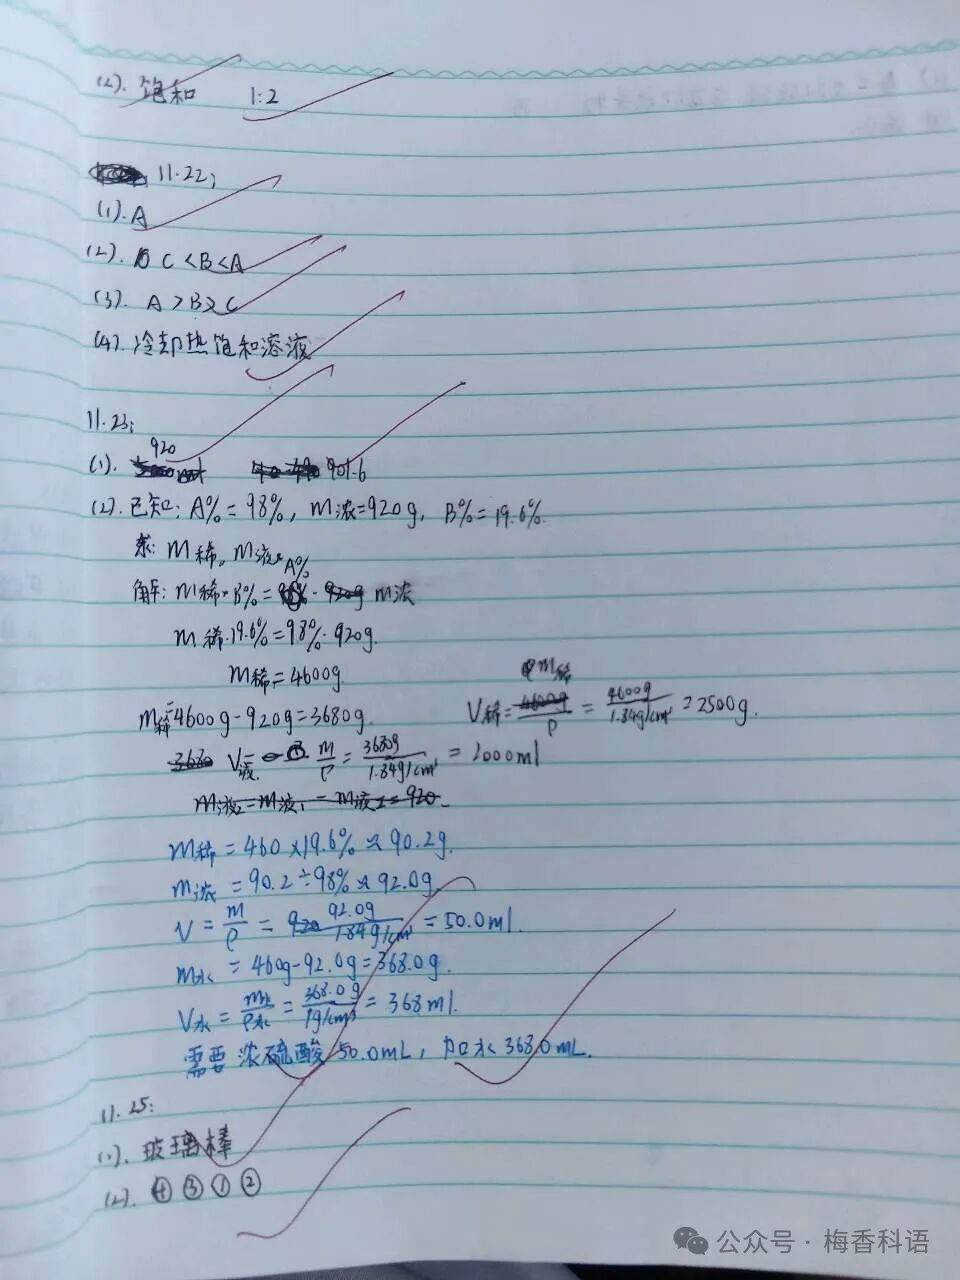 (2). 饱和 1:2
11.22;
(1). A
(2). C<B<A
(3). A>B>C
(4). 冷却热饱和溶液
11.23;
920
(1). 901.6
(2). 已知: A%=98%, m浓=920g, B%=19.6%.
求: m稀, m液. A%
解: m稀·B%= m浓
m稀·19.6%=98%·920g.
m稀=4600g.
m稀=4600g-920g=3680g.
V稀=m稀/ρ=4600g/1.84g/cm³=2500g.
V液=m/ρ=3680g/1.84g/cm³=2000ml
m稀=460×19.6%≈90.2g.
m浓=90.2÷98%≈92.0g.
V=m/ρ=92.0g/1.84g/cm³=50.0ml.
m水=460g-92.0g=368.0g.
V水=m水/ρ水=368.0g/1g/cm³=368ml.
需要浓硫酸50.0mL, 加水368.0mL.
11.25:
(1). 玻璃棒
(2). ④③①②
公众号·梅香科语